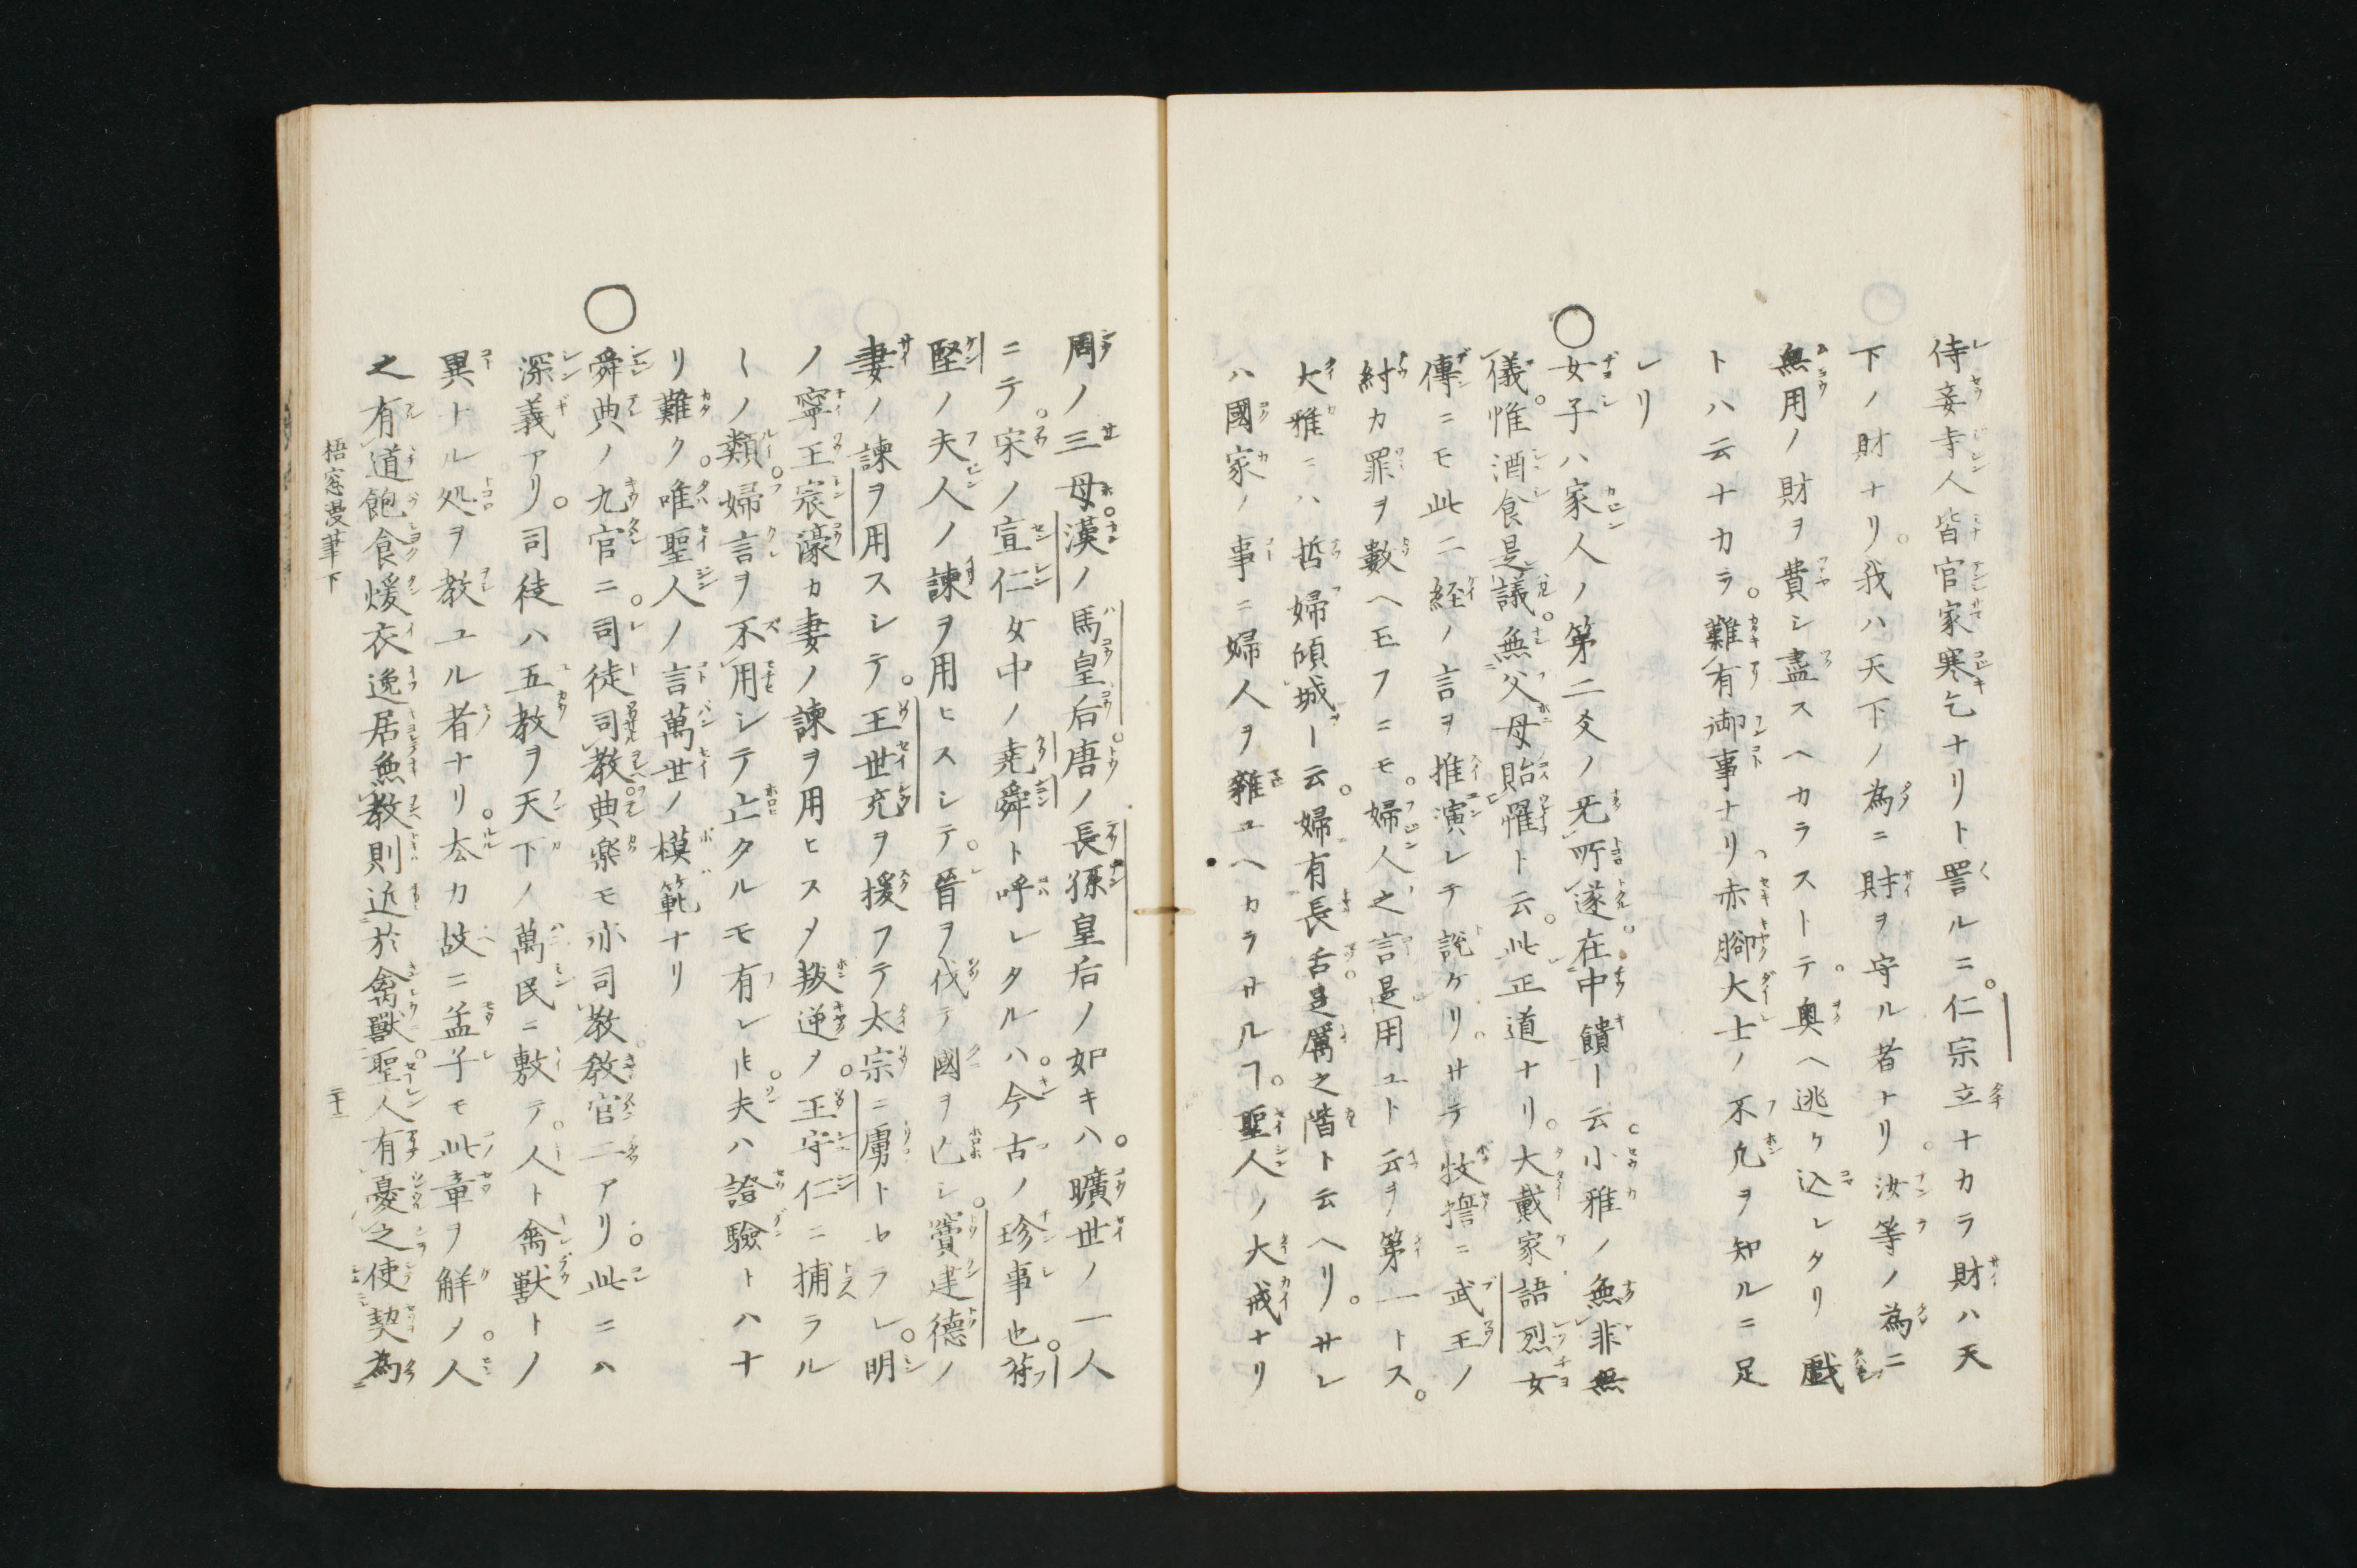 侍妾寺人皆官家寒乞ナリト詈ルニ。仁宗立ナカラ財ハ天
下ノ財ナリ。我ハ天下ノ為ニ財ヲ守ル者ナリ。汝等ノ為ニ
無用ノ財ヲ費シ盡スヘカラストテ。奥ヘ逃ケ込レタリ 戯
トハ云ナカラ。難有御事ナリ。赤脚大士ノ不凡ヲ知ルニ足
レリ
〇女子ハ家人ノ第二爻ノ无所遂。在中饋ー云。小雅ノ無非無
儀。惟酒食是議。無父母貽罹ト云。此正道ナリ。大戴家語烈女
傳ニモ此二経ノ言ヲ推演レテ説ケリ。サテ牧誓ニ武王ノ
紂カ罪ヲ數ヘ玉フニモ。婦人之言是用ユト云ヲ第一トス。
大雅ニハ哲婦傾城ー云。婦有長舌。是厲之階ト云ヘリ。サレ
ハ國家ノ事ニ婦人ヲ雜ユヘカラサルヿ。聖人ノ大戒ナリ
周ノ三母漢ノ馬皇后。唐ノ長孫皇后ノ如キハ。曠世ノ一人
ニテ。宋ノ宣仁女中ノ堯舜ト呼レタルハ。今古ノ珍事也。苻
堅ノ夫人ノ諫ヲ用ヒスシテ。晉ヲ伐テ國ヲ亡シ。竇建德ノ
妻ノ諫ヲ用スシテ。王世充ヲ援フテ太宗ニ虜トセラレ。明
ノ寧王宸濠カ妻ノ諫ヲ用ヒスメ叛逆メ。王守仁ニ捕ラル
ーノ類。婦言ヲ不用シテ亡タルモ有レ𪜈。夫ハ證驗トハナ
リ難ク。唯聖人ノ言萬世ノ模範ナリ
〇舜典ノ九官ニ。司徒司教。典楽モ亦司教。教官二アリ。此ニハ
深義アリ。司徒ハ五教ヲ天下ノ萬民ニ敷テ。人ト禽獣トノ
異トル処ヲ教ユル者ナリ。太カ故ニ孟子モ此章ヲ解ノ。人
之有道飽食煖衣逸居無教則近於禽獸。聖人有憂之使契為
梧窓漫筆下
二十二